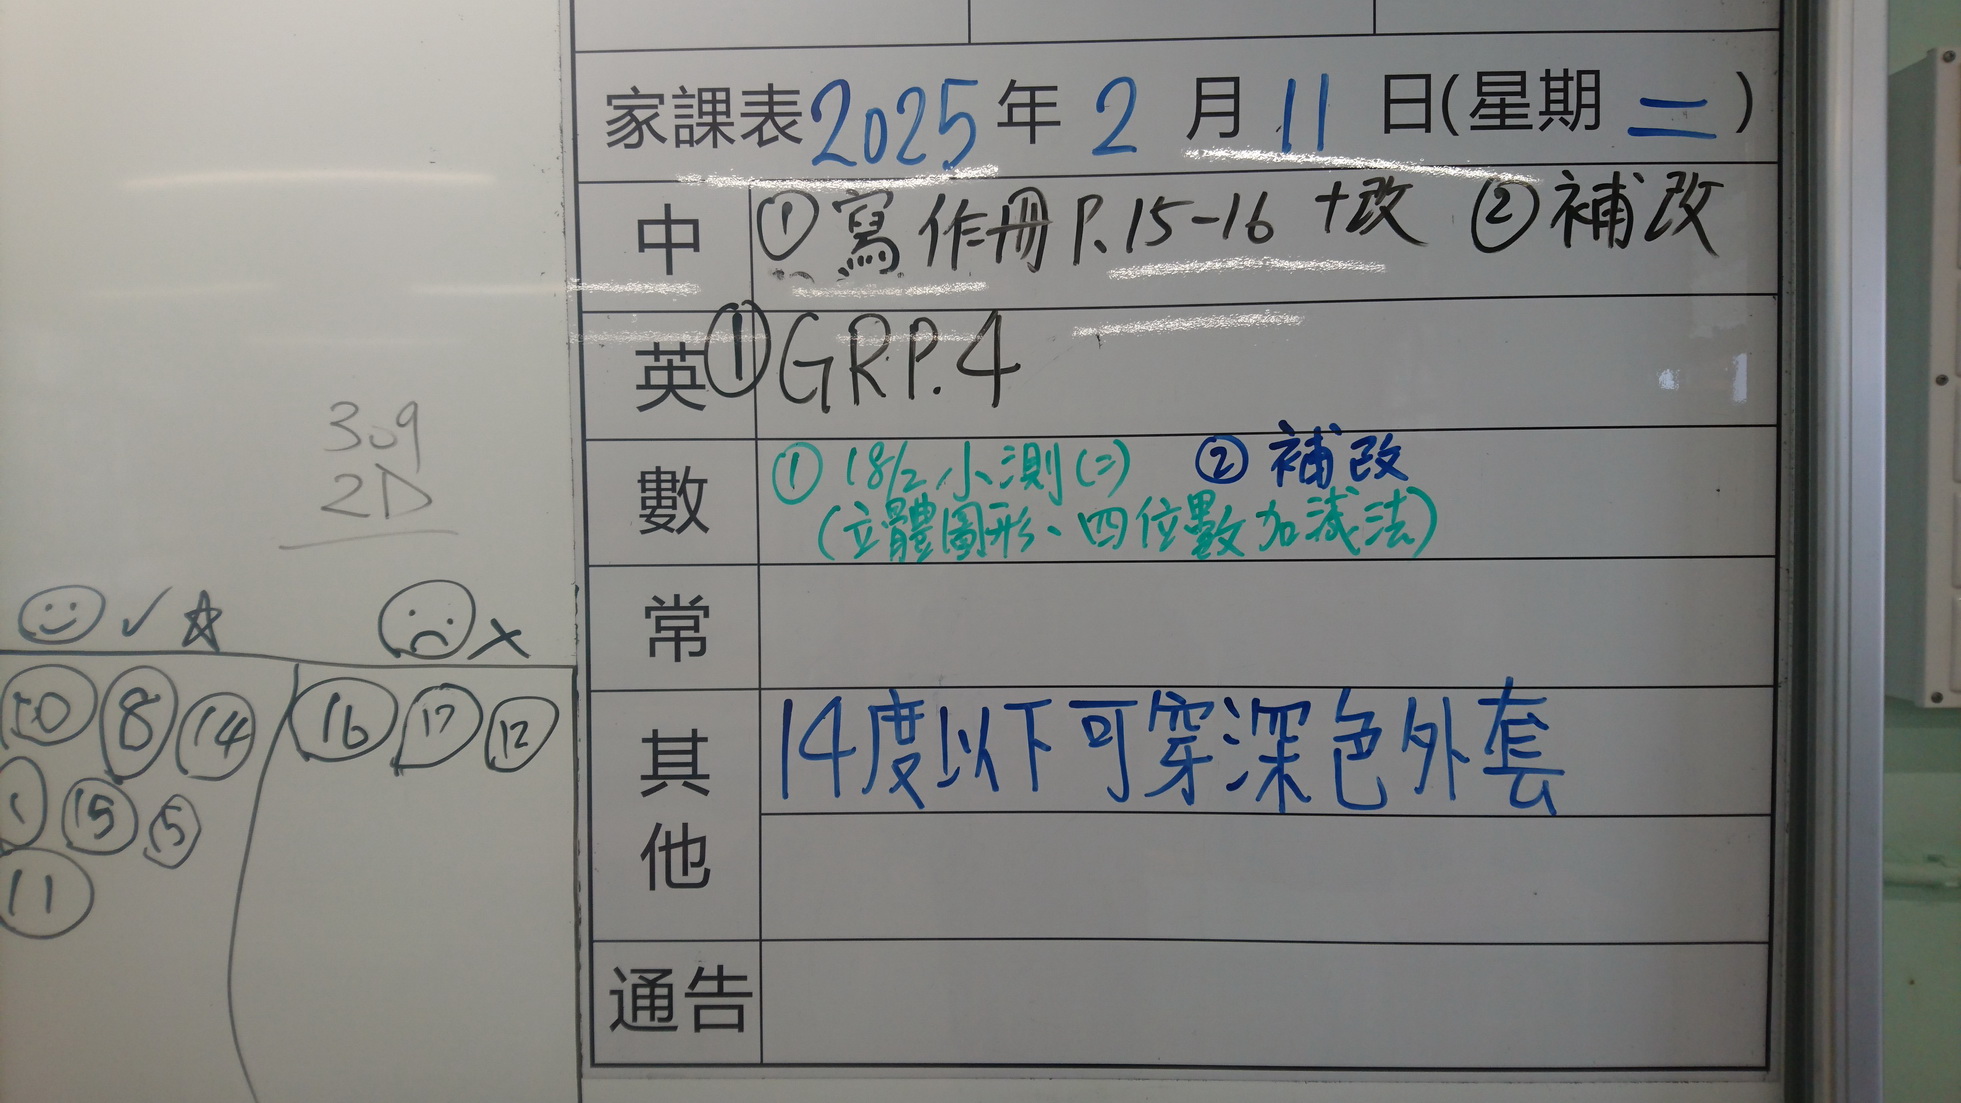 家課表2025年2月11日(星期二)
中 ①寫作冊P.15-16+改 ②補改
英 ①GRP.4
數 ①18/2小測(二) ②補改
(立體圖形、四位數加減法)
常
其他 14度以下可穿深色外套
通告
309
2D
☺ ✓ ☆ ☹ ×
10 8 14 16 17 12
1 15 5
11